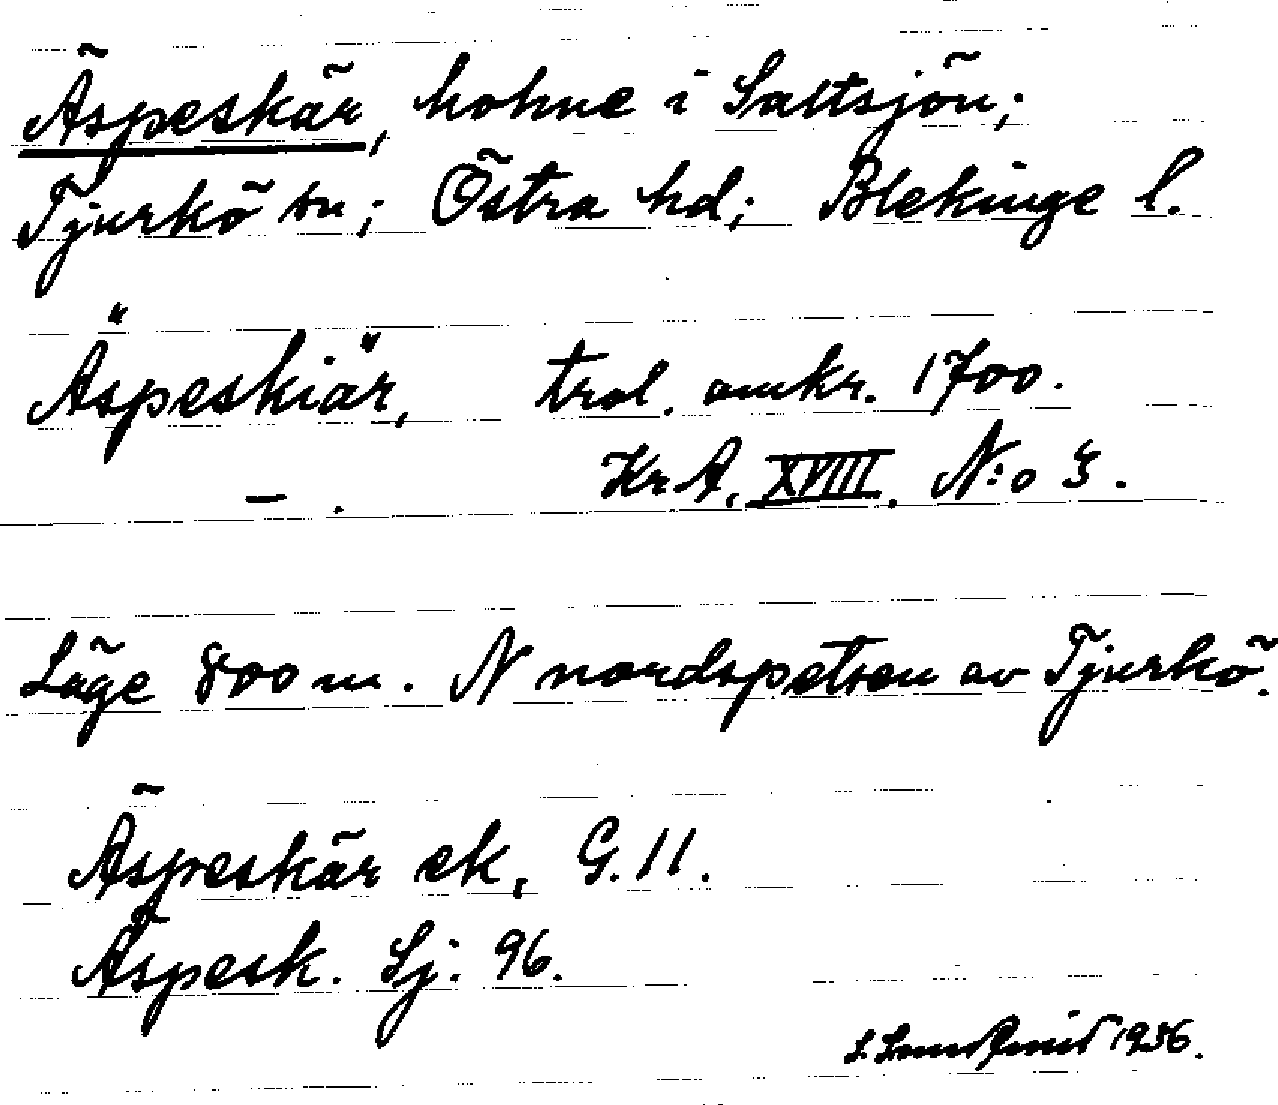 Äspeskär, holme i Saltsjön;
Tjurkö sn; Östra hd; Blekinge l.
Äspeskiär, trol. omkr. 1700.
- . Kr. A. XVIII. N:o 3.
Läge 800 m. N nordspetsen av Tjurkö.
Äspeskär ek, G. 11.
Äspesk. Sj. 96.
1936.